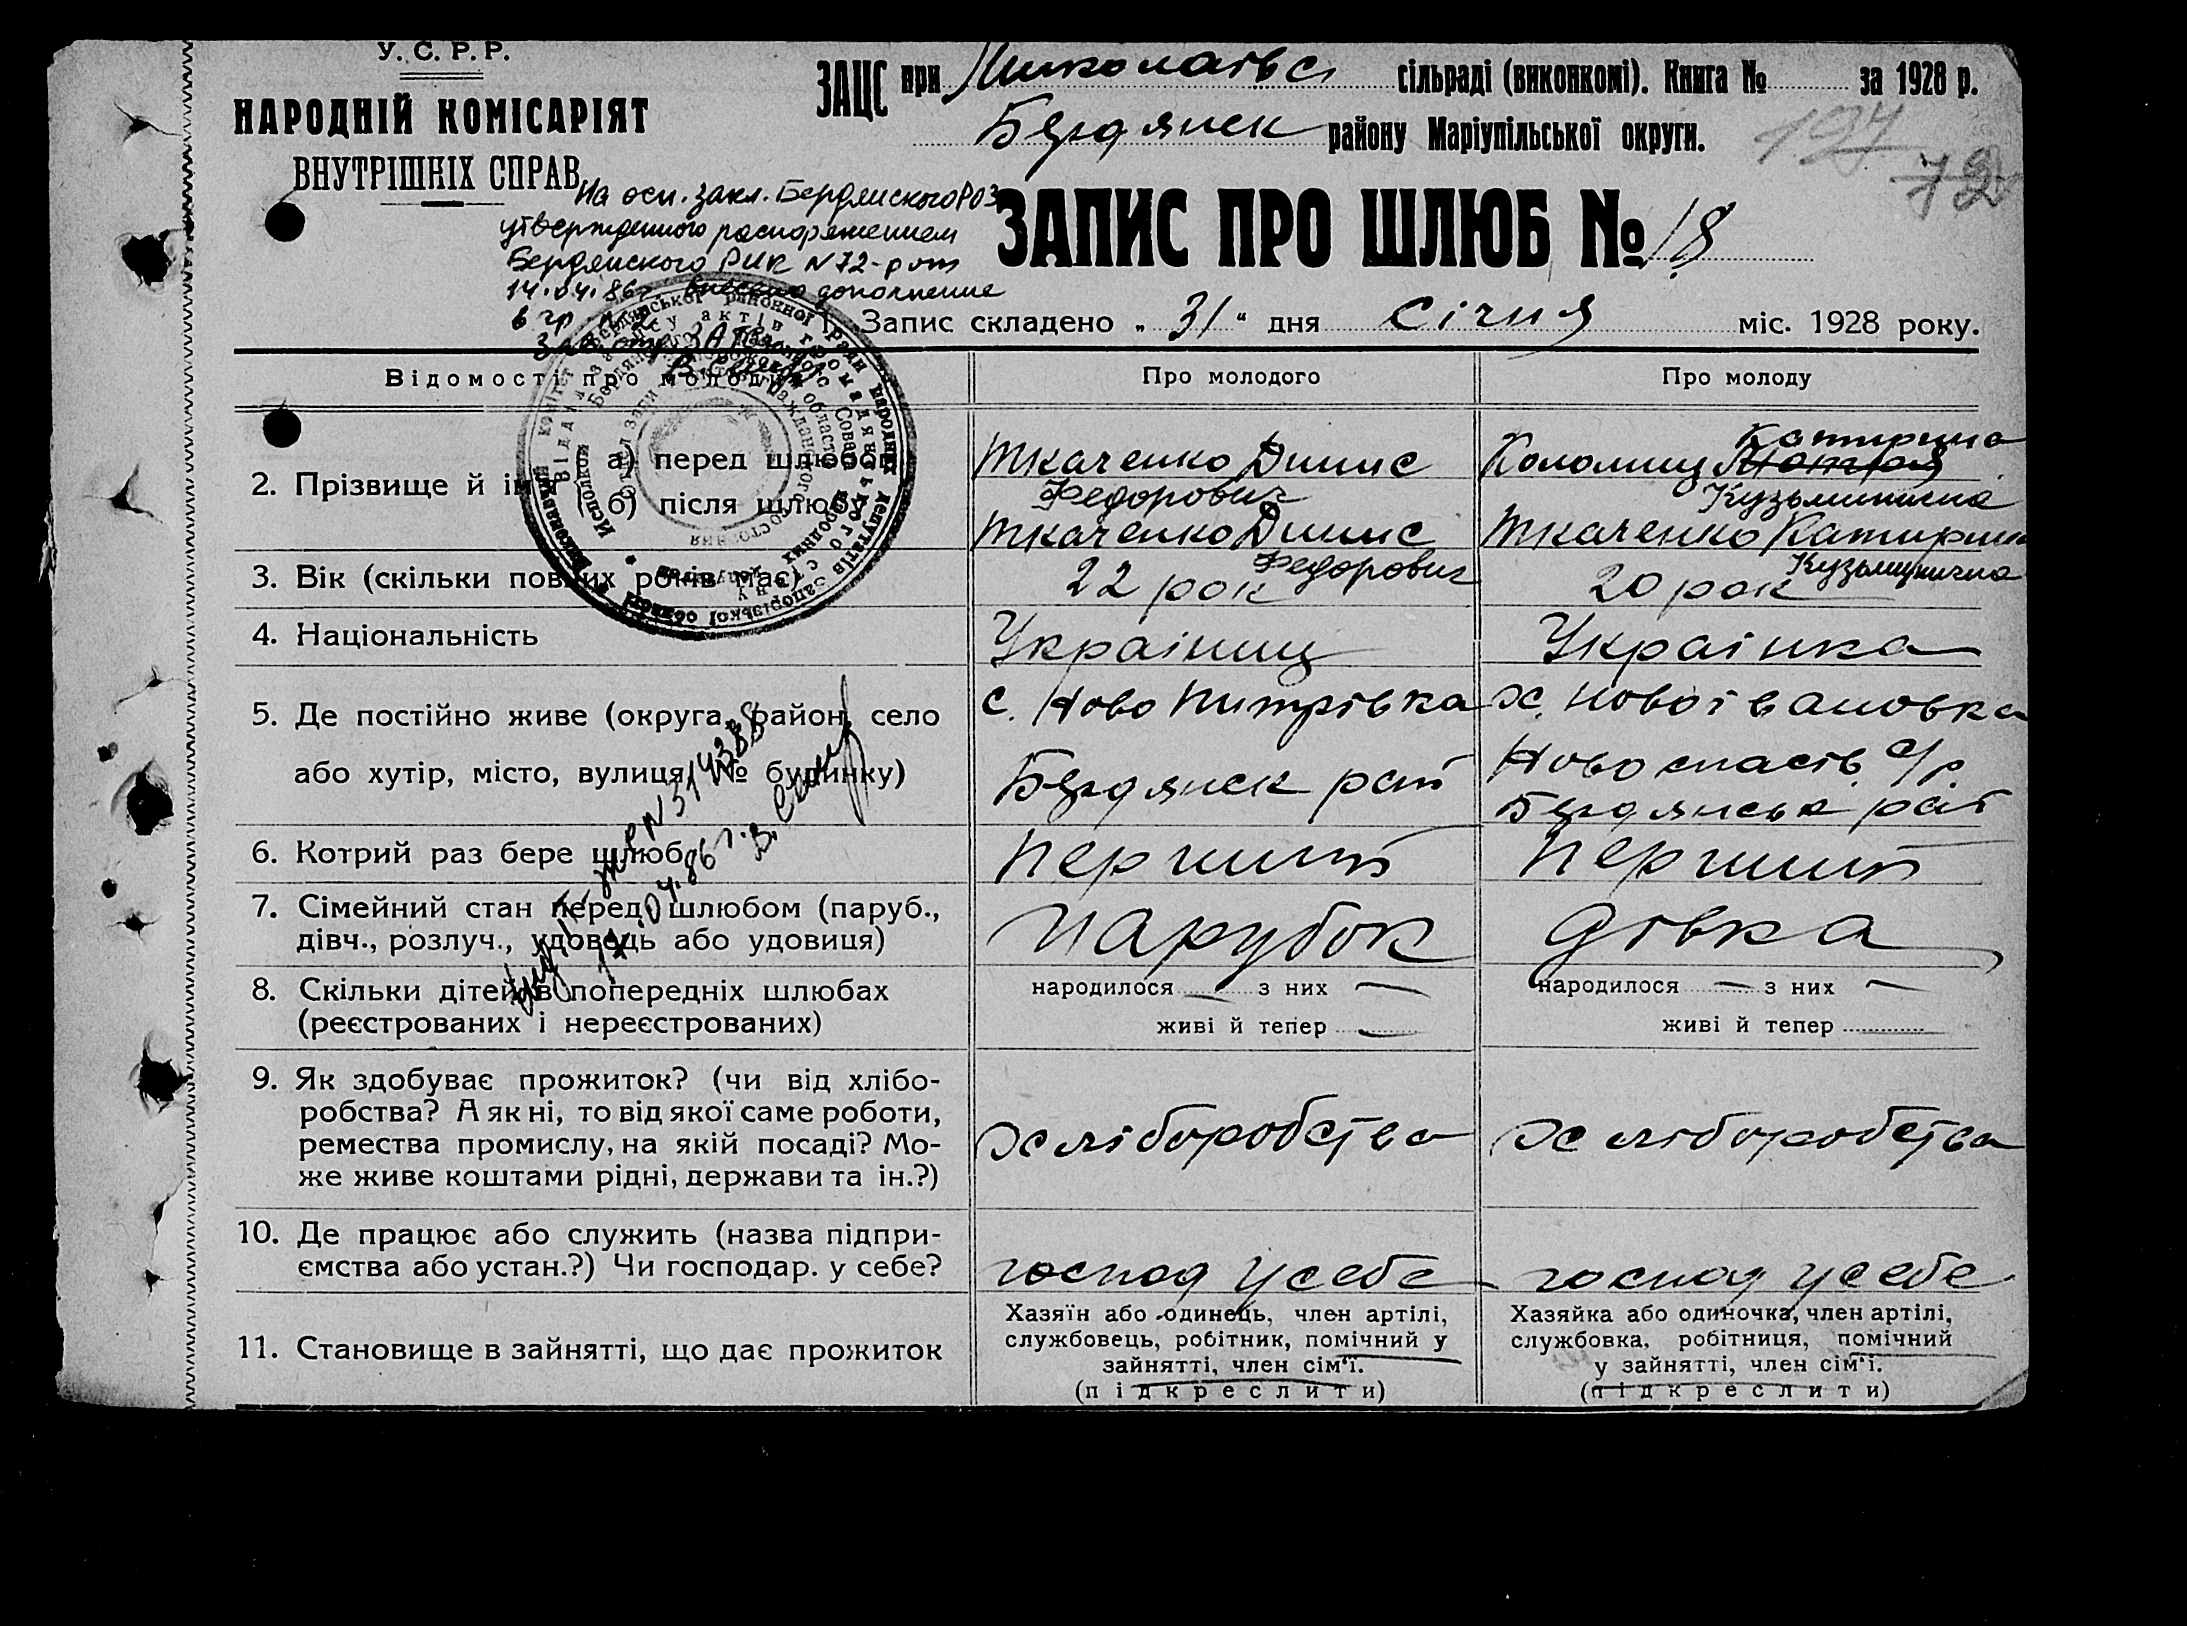 У.С.Р.Р.
НАРОДНІЙ КОМІСАРІЯТ
ВНУТРІШНІХ СПРАВ
ЗАЦС при Николаївсь сільраді (виконкомі). Книга № за 1928 р.
Бердянск району Маріупільської округи.
197
72
На осн. закл. Бердянского РОЗ
утвержденного распоряжением
Бердянского РИК N 72-р от
14.04.86г. внесено дополнение
в гр.
ЗАПИС ПРО ШЛЮБ № 18
1. Запис складено „ 31 “ дня січня міс. 1928 року.
Відомості про молодих
Про молодого
Про молоду
2. Прізвище й ім'я
а) перед шлюбом
Ткаченко Динис
Федорович
Коломиец Мотря Катирина
Кузьминична
б) після шлюбу
Ткаченко Динис
Федорович
Ткаченко Катирина
Кузьминична
3. Вік (скільки повних років має)
22 рок
20 рок
4. Національність
Украіниц
Украінка
5. Де постійно живе (округа, район, село
або хутір, місто, вулиця, № будинку)
с. Ново Питрівка
Бердянск рай
х. Новоівановка
Новоспасів. с/р.
Бердянськ рай
N 514388
14.04.86г.
6. Котрий раз бере шлюб
перший
перший
7. Сімейний стан перед шлюбом (паруб.,
дівч., розлуч., удовець або удовиця)
парубок
дівка
8. Скільки дітей в попередніх шлюбах
(реєстрованих і нереєстрованих)
народилося — з них —
живі й тепер —
народилося — з них —
живі й тепер
9. Як здобуває прожиток? (чи від хлібо-
робства? А як ні, то від якої саме роботи,
ремества промислу, на якій посаді? Мо-
же живе коштами рідні, держави та ін.?)
хліборобства
хліборобства
10. Де працює або служить (назва підпри-
ємства або устан.?) Чи господар. у себе?
господ у себе
господ у себе
11. Становище в зайнятті, що дає прожиток
Хазяїн або одинець, член артілі,
службовець, робітник, помічний у
зайнятті, член сім'ї.
(підкреслити)
Хазяйка або одиночка, член артілі,
службовка, робітниця, помічний
у зайнятті, член сім'ї.
(підкреслити)